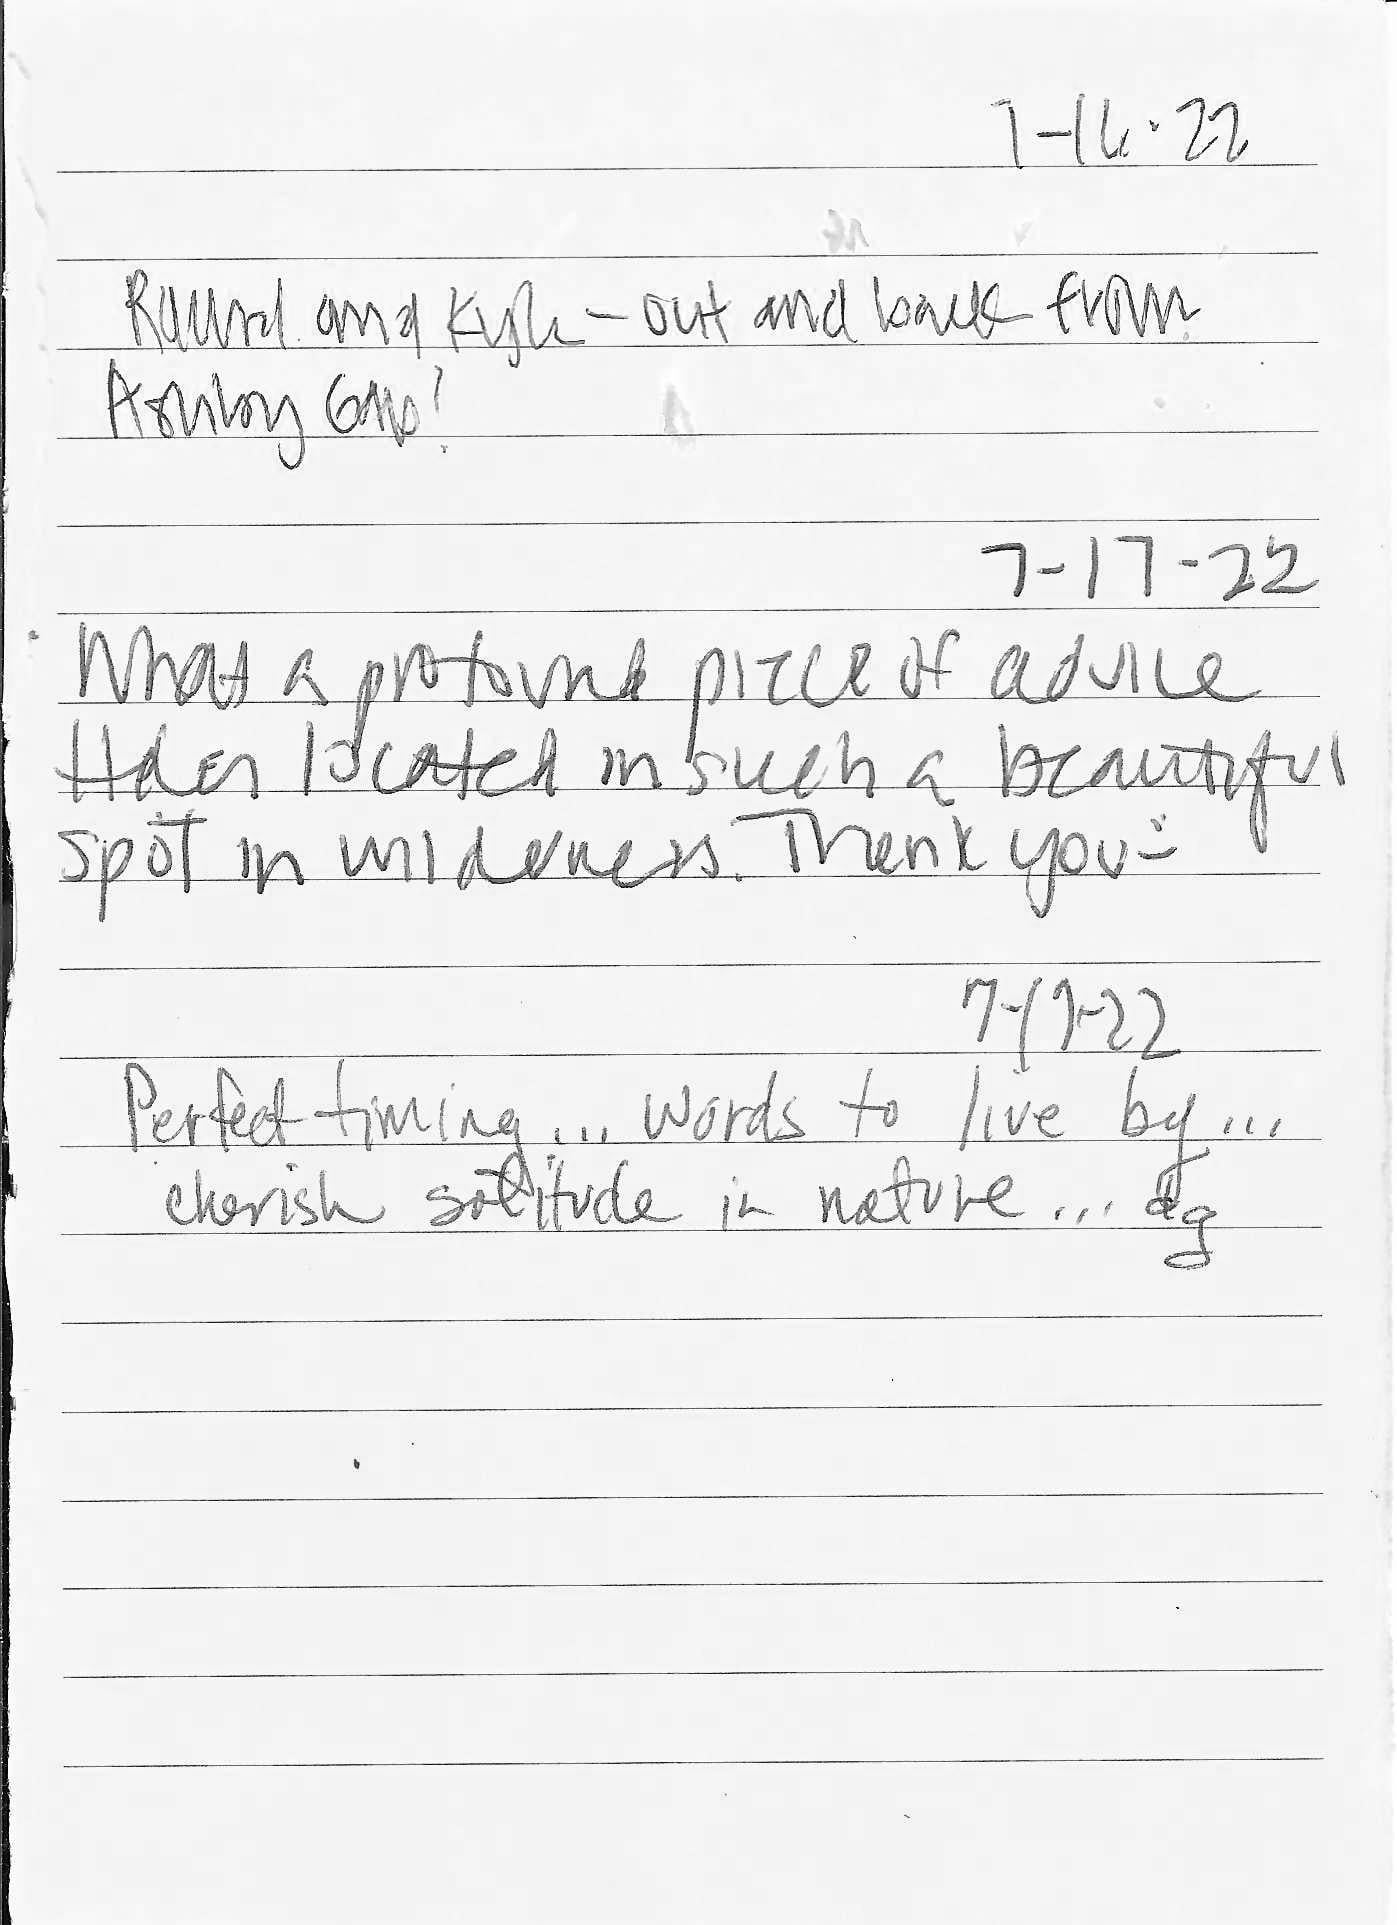 7-16-22
and Kyle - out and back from
Ashby Gap!
7-17-22
What a profound piece of advice
located in such a beautiful
spot in wilderness. Thank you
7-19-22
Perfect timing... words to live by...
cherish solitude in nature... dg